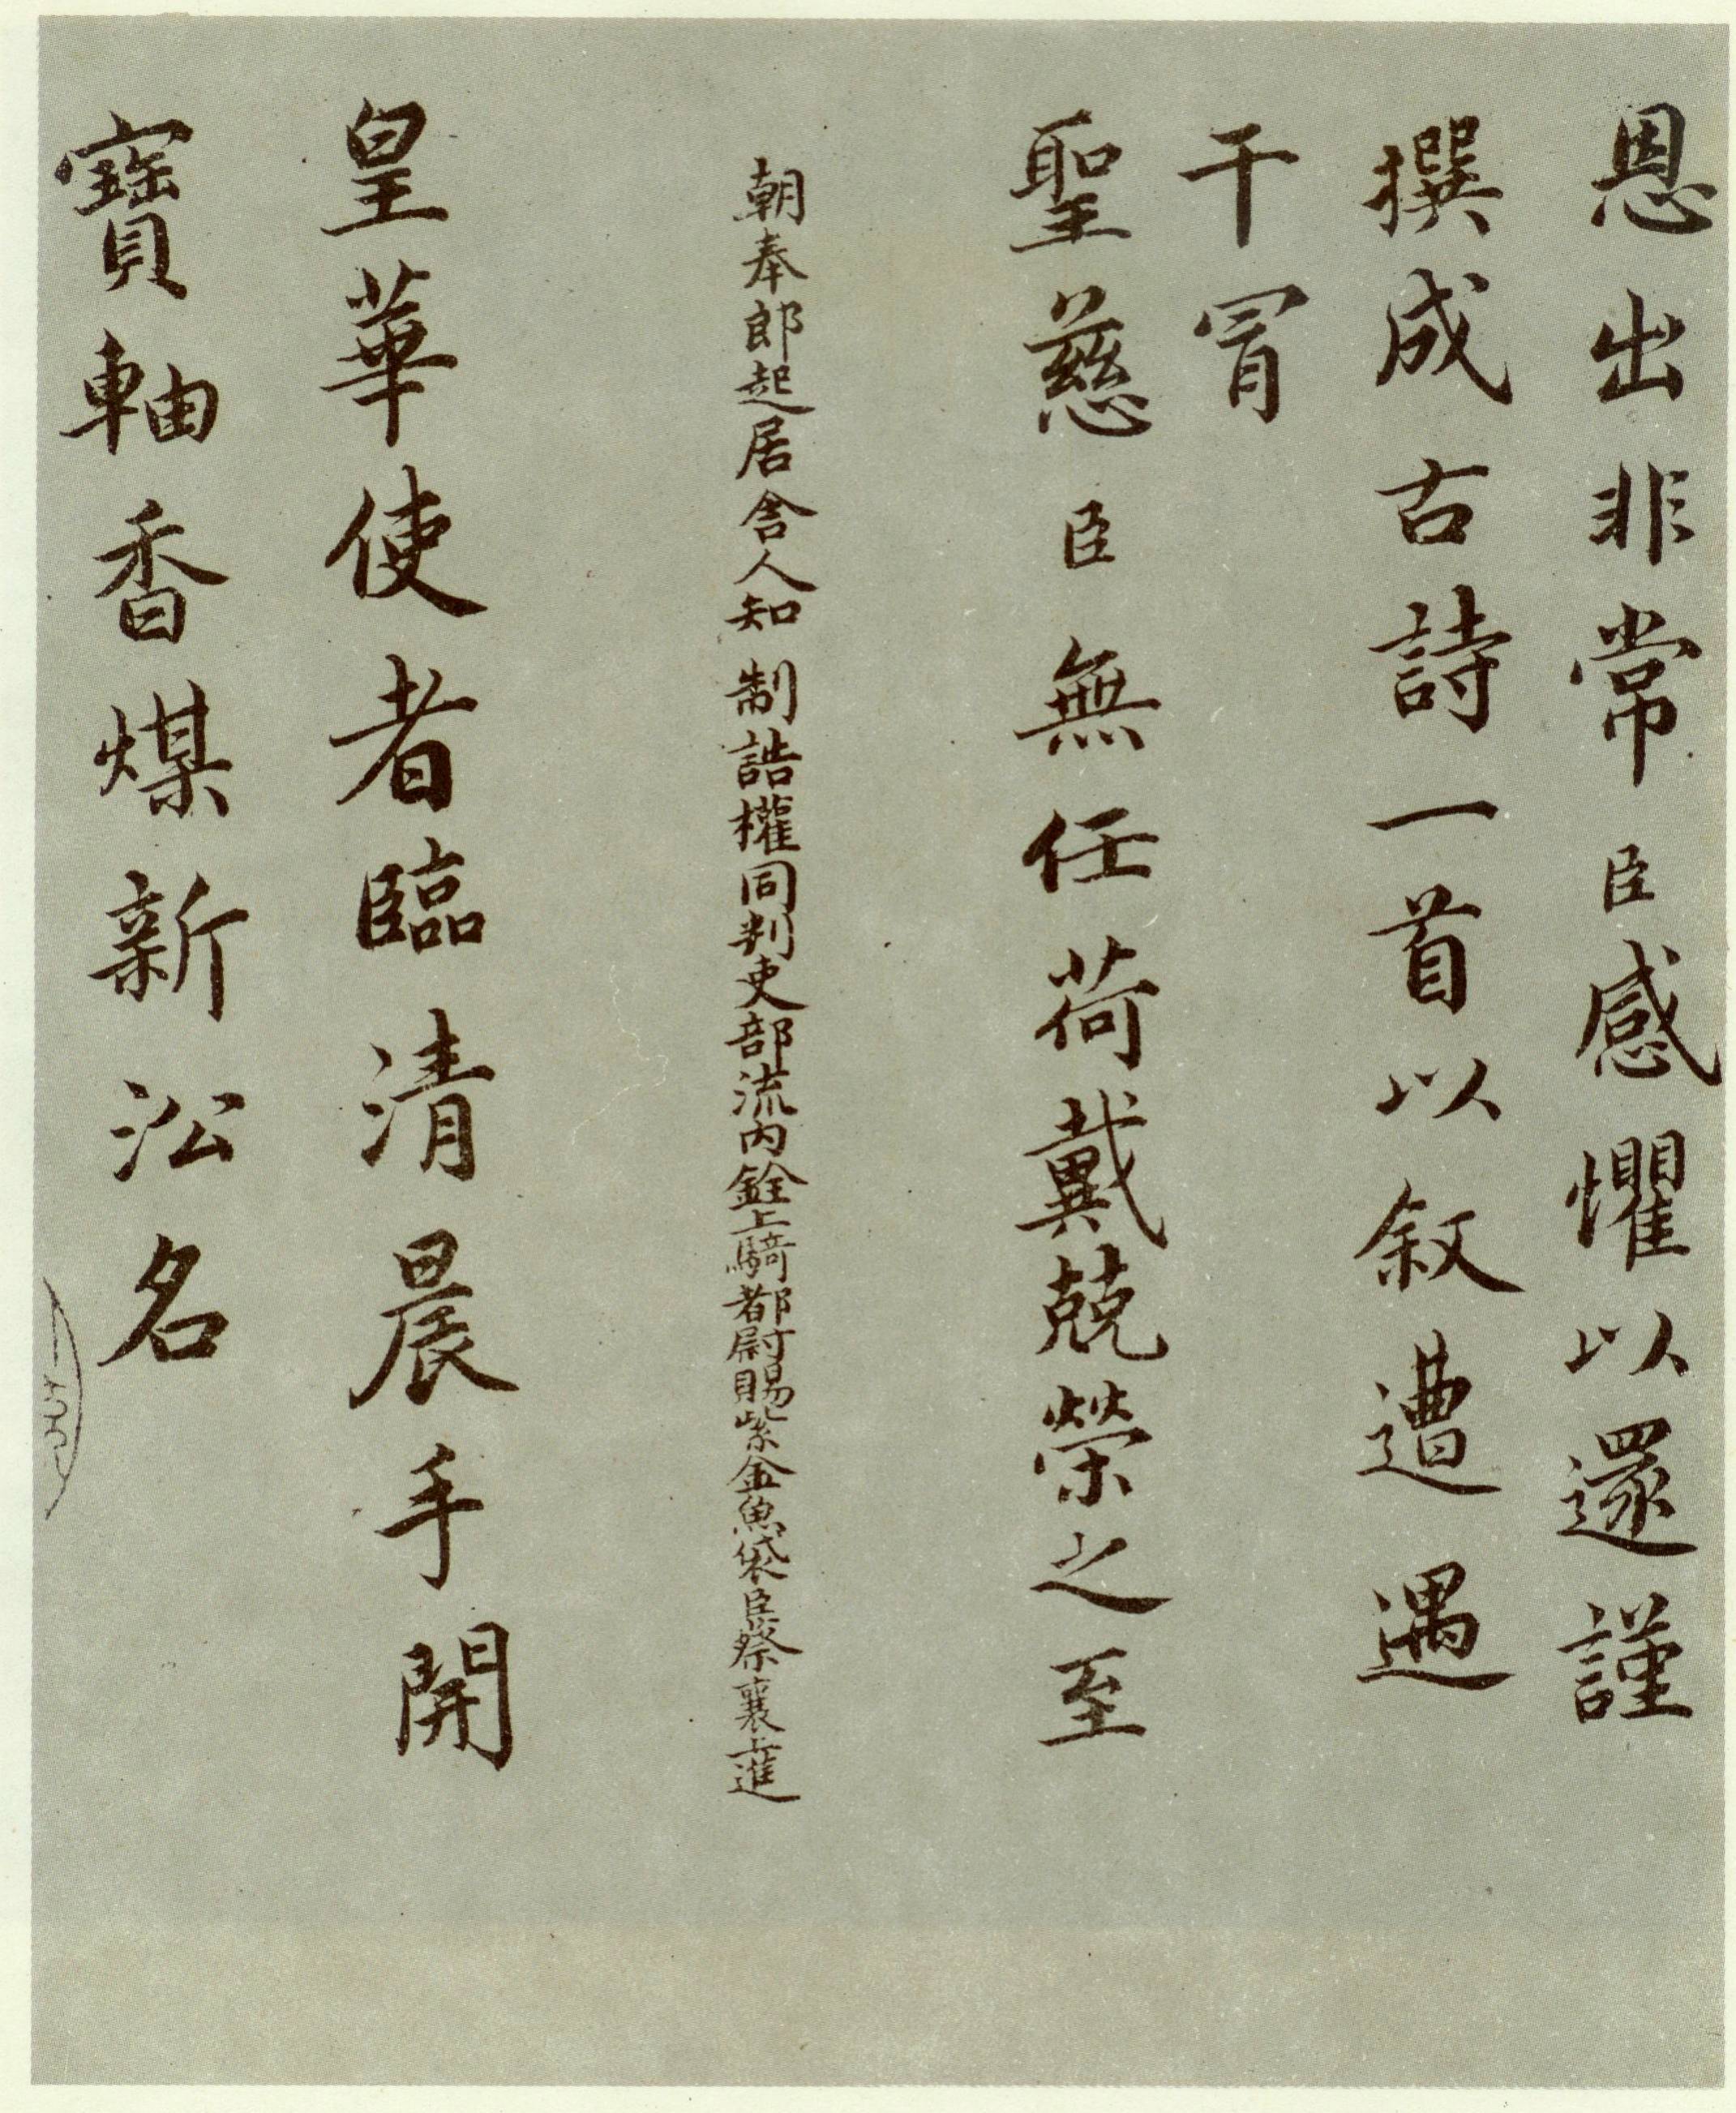 恩出非常臣感懼以還謹
撰成古詩一首以叙遭遇
干冒
聖慈臣無任荷戴兢榮之至
朝奉郎起居舍人知制誥權同判吏部流内銓上騎都尉賜紫金魚袋臣蔡襄上進
皇華使者臨清晨手開
寶軸香煤新沿名